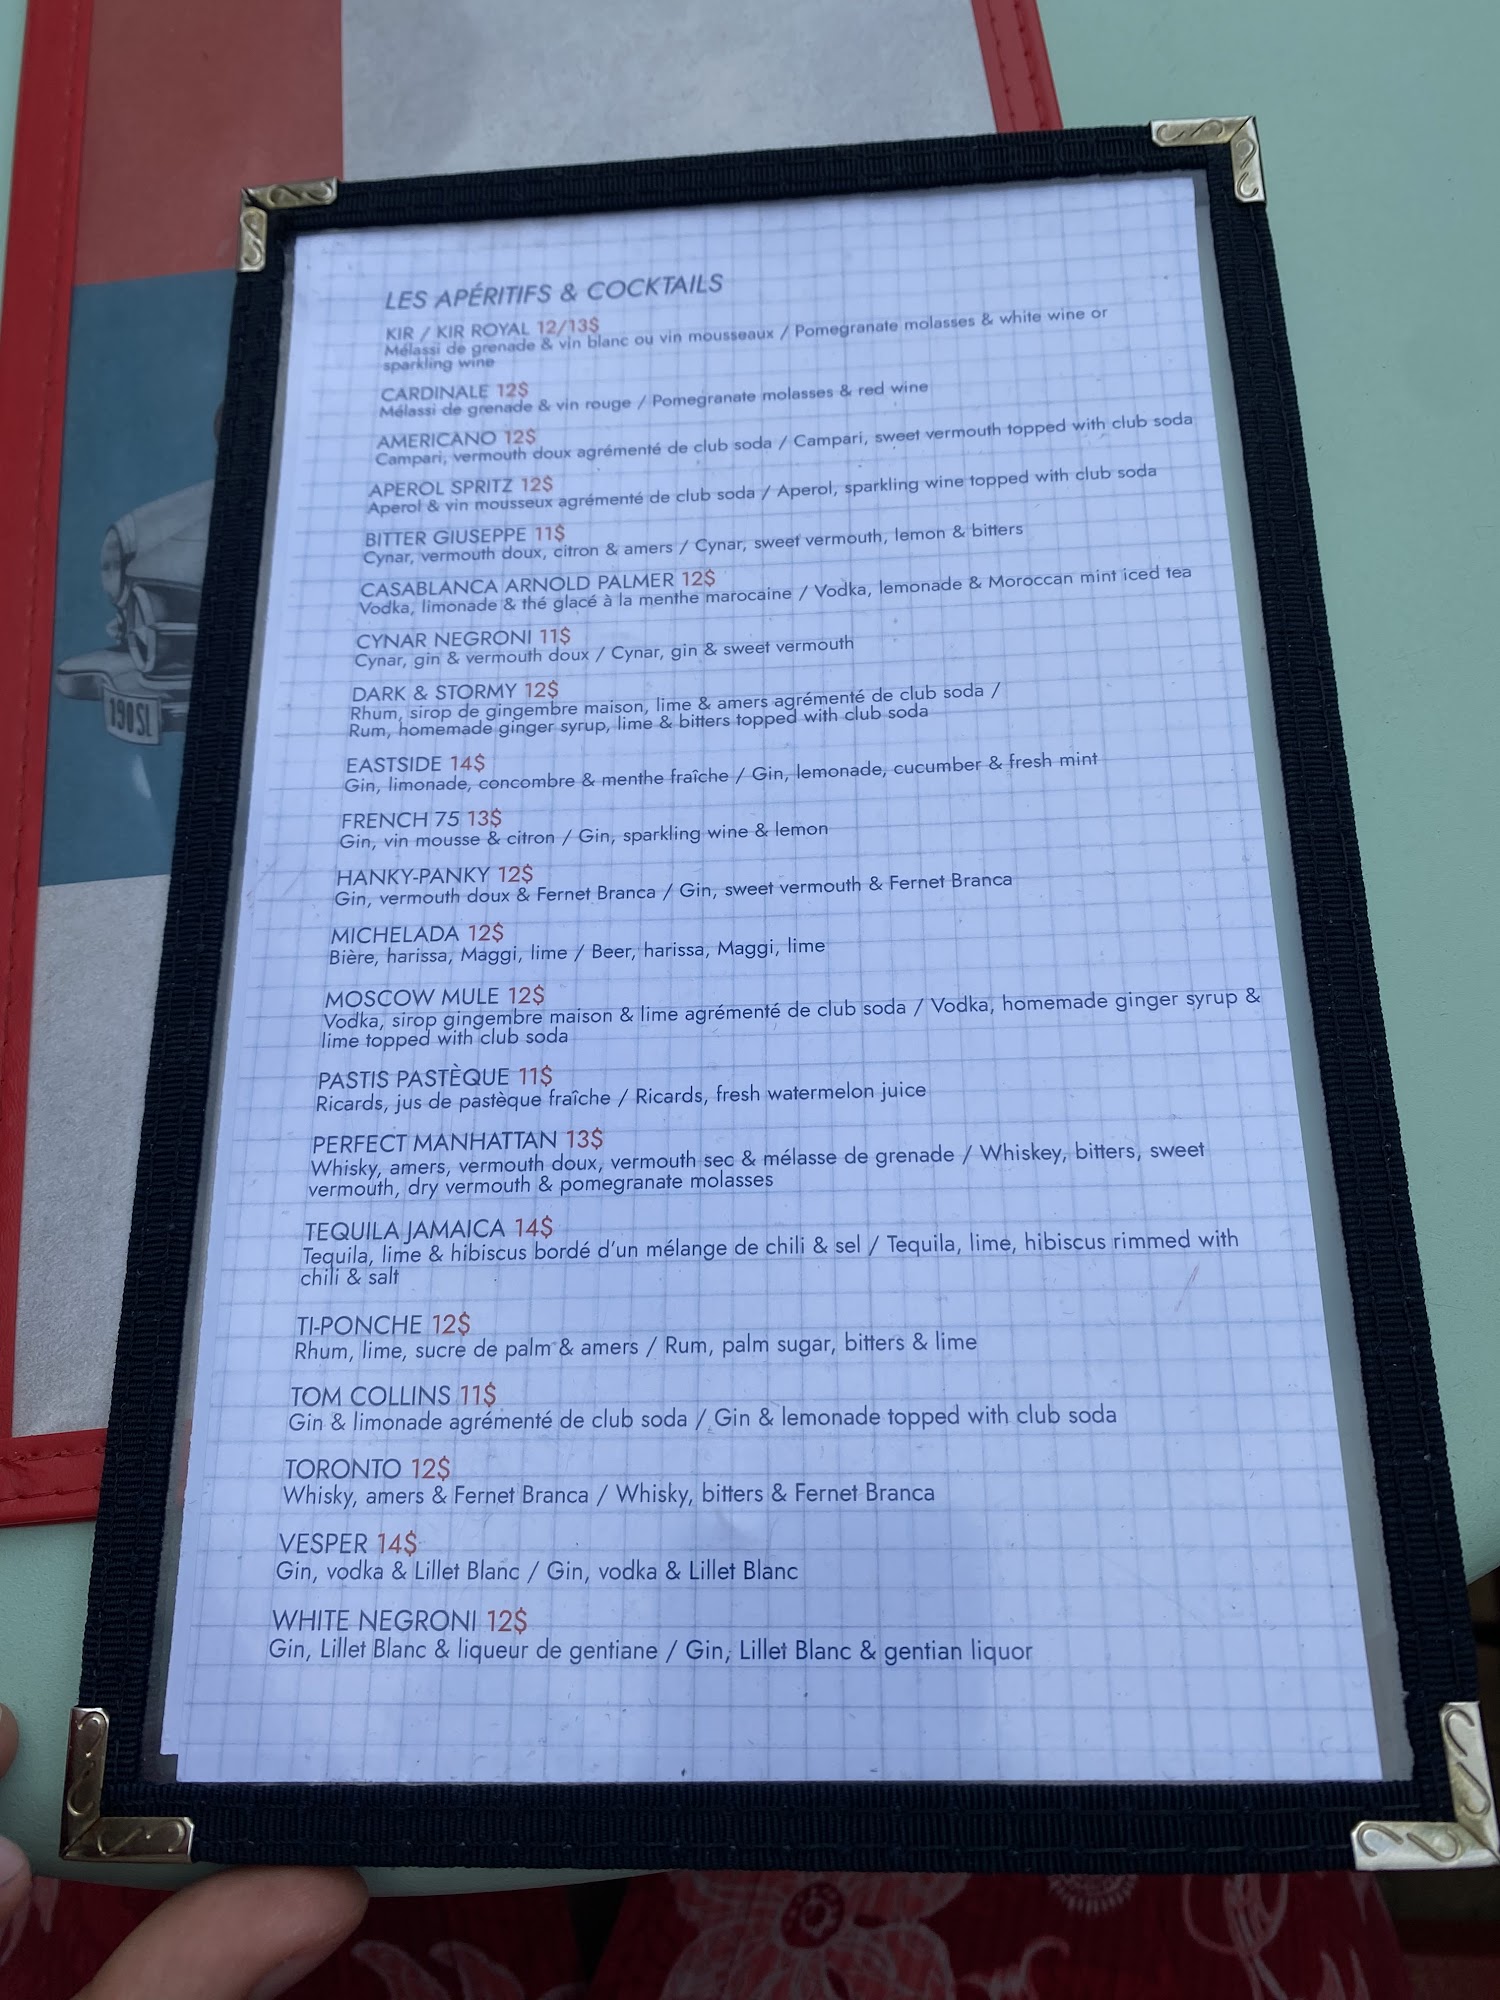 190SL
LES APÉRITIFS & COCKTAILS
KIR / KIR ROYAL 12/13$
Mélassi de grenade & vin blanc ou vin mousseaux / Pomegranate molasses & white wine or
sparkling wine
CARDINALE 12$
Mélassi de grenade & vin rouge / Pomegranate molasses & red wine
AMERICANO 12$
Campari, vermouth doux agrémenté de club soda / Campari, sweet vermouth topped with club soda
APEROL SPRITZ 12$
Aperol & vin mousseux agrémenté de club soda / Aperol, sparkling wine topped with club soda
BITTER GIUSEPPE 11$
Cynar, vermouth doux, citron & amers / Cynar, sweet vermouth, lemon & bitters
CASABLANCA ARNOLD PALMER 12$
Vodka, limonade & thé glacé à la menthe marocaine / Vodka, lemonade & Moroccan mint iced tea
CYNAR NEGRONI 11$
Cynar, gin & vermouth doux / Cynar, gin & sweet vermouth
DARK & STORMY 12$
Rhum, sirop de gingembre maison, lime & amers agrémenté de club soda /
Rum, homemade ginger syrup, lime & bitters topped with club soda
EASTSIDE 14$
Gin, limonade, concombre & menthe fraîche / Gin, lemonade, cucumber & fresh mint
FRENCH 75 13$
Gin, vin mousse & citron / Gin, sparkling wine & lemon
HANKY-PANKY 12$
Gin, vermouth doux & Fernet Branca / Gin, sweet vermouth & Fernet Branca
MICHELADA 12$
Bière, harissa, Maggi, lime / Beer, harissa, Maggi, lime
MOSCOW MULE 12$
Vodka, sirop gingembre maison & lime agrémenté de club soda / Vodka, homemade ginger syrup &
lime topped with club soda
PASTIS PASTÈQUE 11$
Ricards, jus de pastèque fraîche / Ricards, fresh watermelon juice
PERFECT MANHATTAN 13$
Whisky, amers, vermouth doux, vermouth sec & mélasse de grenade / Whiskey, bitters, sweet
vermouth, dry vermouth & pomegranate molasses
TEQUILA JAMAICA 14$
Tequila, lime & hibiscus bordé d'un mélange de chili & sel / Tequila, lime, hibiscus rimmed with
chili & salt
TI-PONCHE 12$
Rhum, lime, sucre de palm & amers / Rum, palm sugar, bitters & lime
TOM COLLINS 11$
Gin & limonade agrémenté de club soda / Gin & lemonade topped with club soda
TORONTO 12$
Whisky, amers & Fernet Branca / Whisky, bitters & Fernet Branca
VESPER 14$
Gin, vodka & Lillet Blanc / Gin, vodka & Lillet Blanc
WHITE NEGRONI 12$
Gin, Lillet Blanc & liqueur de gentiane / Gin, Lillet Blanc & gentian liquor